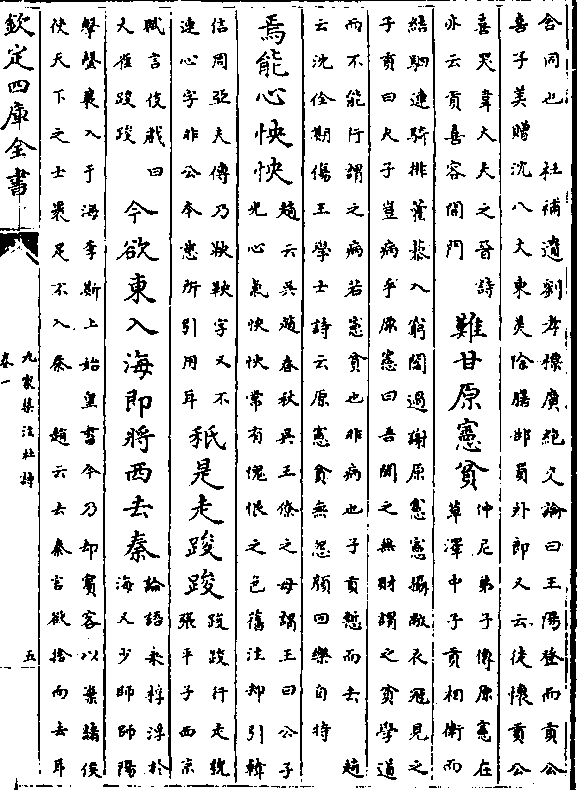 舍同也　杜補遺劉孝標廣絶交論曰王陽登而貢公
喜子美贈沈八丈東美除膳部員外郎又云徒懷貢公
喜哭韋大夫之晉詩
亦云貢喜容間門
難甘原憲貧
仲尼弟子傳原憲在
草澤中子貢相衛而
結駟連騎排藜藿入窮閻過謝原憲憲攝敝衣冠見之
子貢曰夫子豈病乎原憲曰吾聞之無財謂之貧學道
而不能行謂之病若憲貧也非病也子貢慙而去　趙
云沈佺期傷王學士詩云原憲貧無怨顔回樂自持
焉能心怏怏
趙云吳越春秋吳王僚之母謂王曰公子
光心氣怏怏常有愧恨之色舊注却引韓
信周亞夫傳乃鞅鞅字又不
連心字非公本意所引用耳
祇是走踆踆
踆踆行走貌
張平子西京
賦言伎戲曰
大雀踆踆
今欲東入海即將西去秦
論語乘桴浮於
海又少師師陽
擊磬襄入于海李斯上始皇書今乃却賓客以業諸侯
使天下之士裹足不入秦　趙云去秦言欲捨而去耳
欽定四庫全書
九家集注杜詩
卷一
五